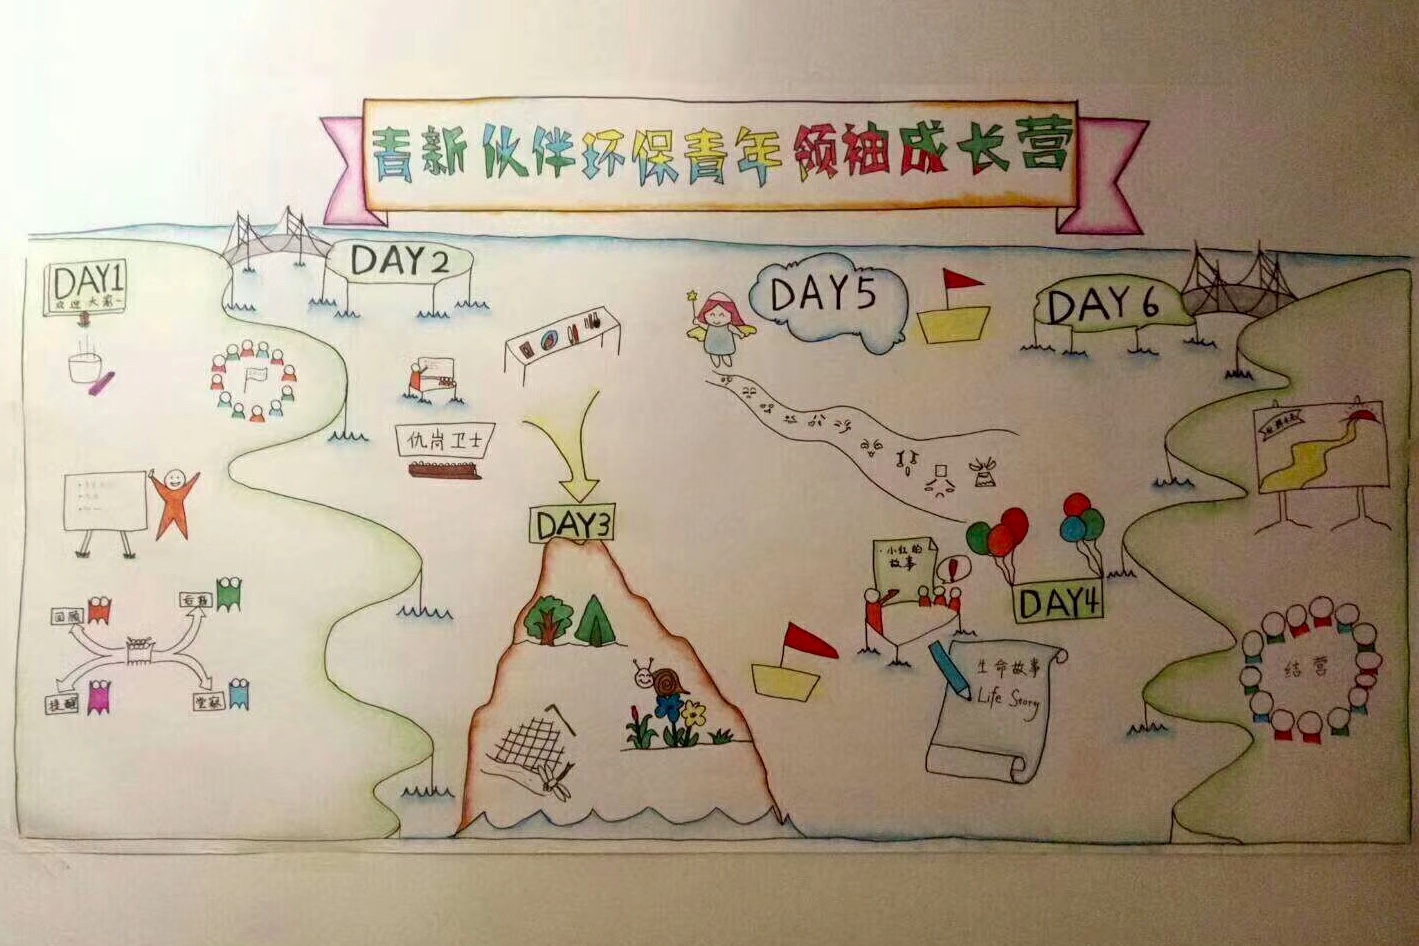 青新伙伴环保青年领袖成长营
DAY1
欢迎大家~
DAY2
仇岗卫士
DAY3
DAY5
DAY6
小红的
故事
DAY4
生命故事
Life Story
回顾
提醒
结营